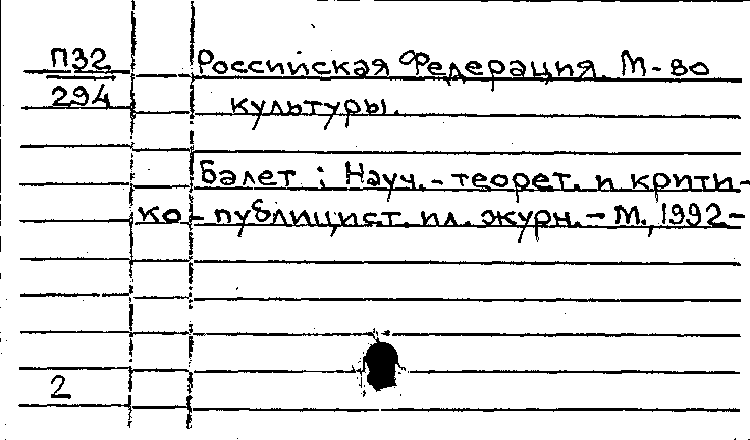 П32
294
Российская Федерация. М-во
культуры.
Балет : Науч.- теорет. и крити-
ко - публицист. ил. журн. - М., 1992-
2